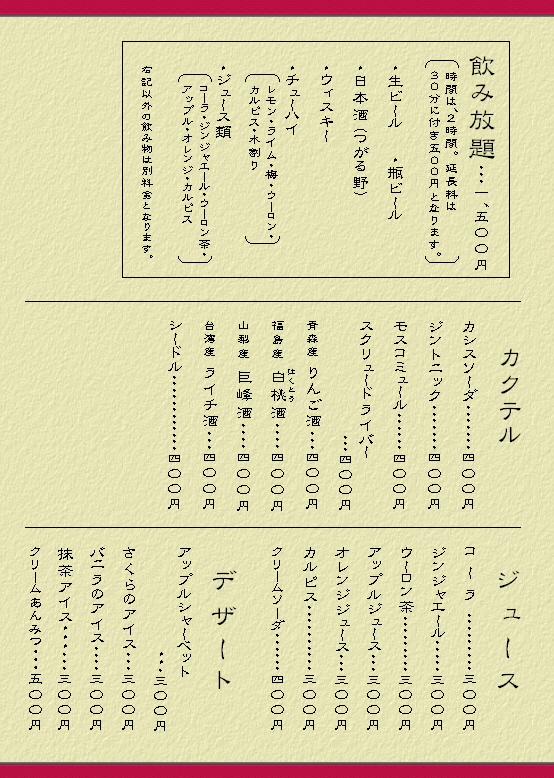 飲み放題・・・一、五〇〇円
時間は、2時間。延長料は
30分に付き五〇〇円となります。
・生ビール ・瓶ビール
・日本酒(つがる野)
・ウィスキー
・チューハイ
レモン・ライム・梅・ウーロン・
カルピス・水割り
・ジュース類
コーラ・ジンジャエール・ウーロン茶・
アップル・オレンジ・カルピス
右記以外の飲み物は別料金となります。
カクテル
カシスソーダ・・・・・四〇〇円
ジントニック・・・・・四〇〇円
モスコミュール・・・・・四〇〇円
スクリュードライバー
・・・四〇〇円
青森産 りんご酒・・・四〇〇円
福島産 白桃酒・・・四〇〇円
はくとう
山梨産 巨峰酒・・・四〇〇円
台湾産 ライチ酒・・・四〇〇円
シードル・・・・・・・・・四〇〇円
ジュース
コーラ・・・・・・・三〇〇円
ジンジャエール・・・・・三〇〇円
ウーロン茶・・・・・・・三〇〇円
アップルジュース・・・・三〇〇円
オレンジジュース・・・・三〇〇円
カルピス・・・・・・・・三〇〇円
クリームソーダ・・・・・四〇〇円
デザート
アップルシャーベット
・・・三〇〇円
さくらのアイス・・・・三〇〇円
バニラのアイス・・・・三〇〇円
抹茶アイス・・・・・・三〇〇円
クリームあんみつ・・・五〇〇円